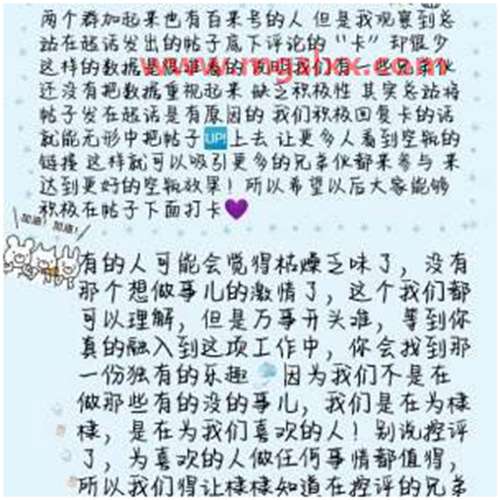 两个群加起来也有百来号的人 但是我观察到总
站在超话发出的帖子底下评论的“卡”却很少
这样的数据是很难看的 说明我们有一些兄弟伙
www.mgzlxx.com
还没有把数据重视起来 缺乏积极性 其实总站将
帖子发在超话是有原因的 我们积极回复卡的话
就能无形中把帖子UP!上去 让更多人看到空瓶的
链接 这样就可以吸引更多的兄弟伙都来参与 来
达到更好的空瓶效果！所以希望以后大家能够
积极在帖子下面打卡💜
加油！加油！
有的人可能会觉得枯燥乏味了，没有
那个想做事儿的激情了，这个我们都
可以理解，但是万事开头难，等到你
真的融入到这项工作中，你会找到那
一份独有的乐趣 因为我们不是在
做那些有的没的事儿，我们是在为棣
棣，是在为我们喜欢的人！别说控评
了，为喜欢的人做任何事情都值得，
所以我们得让棣棣知道在控评的兄弟